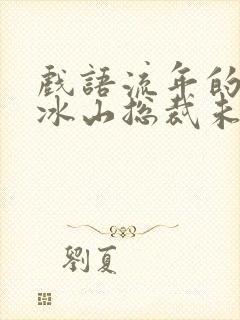 戲語流年的
冰山总裁未
劉夏